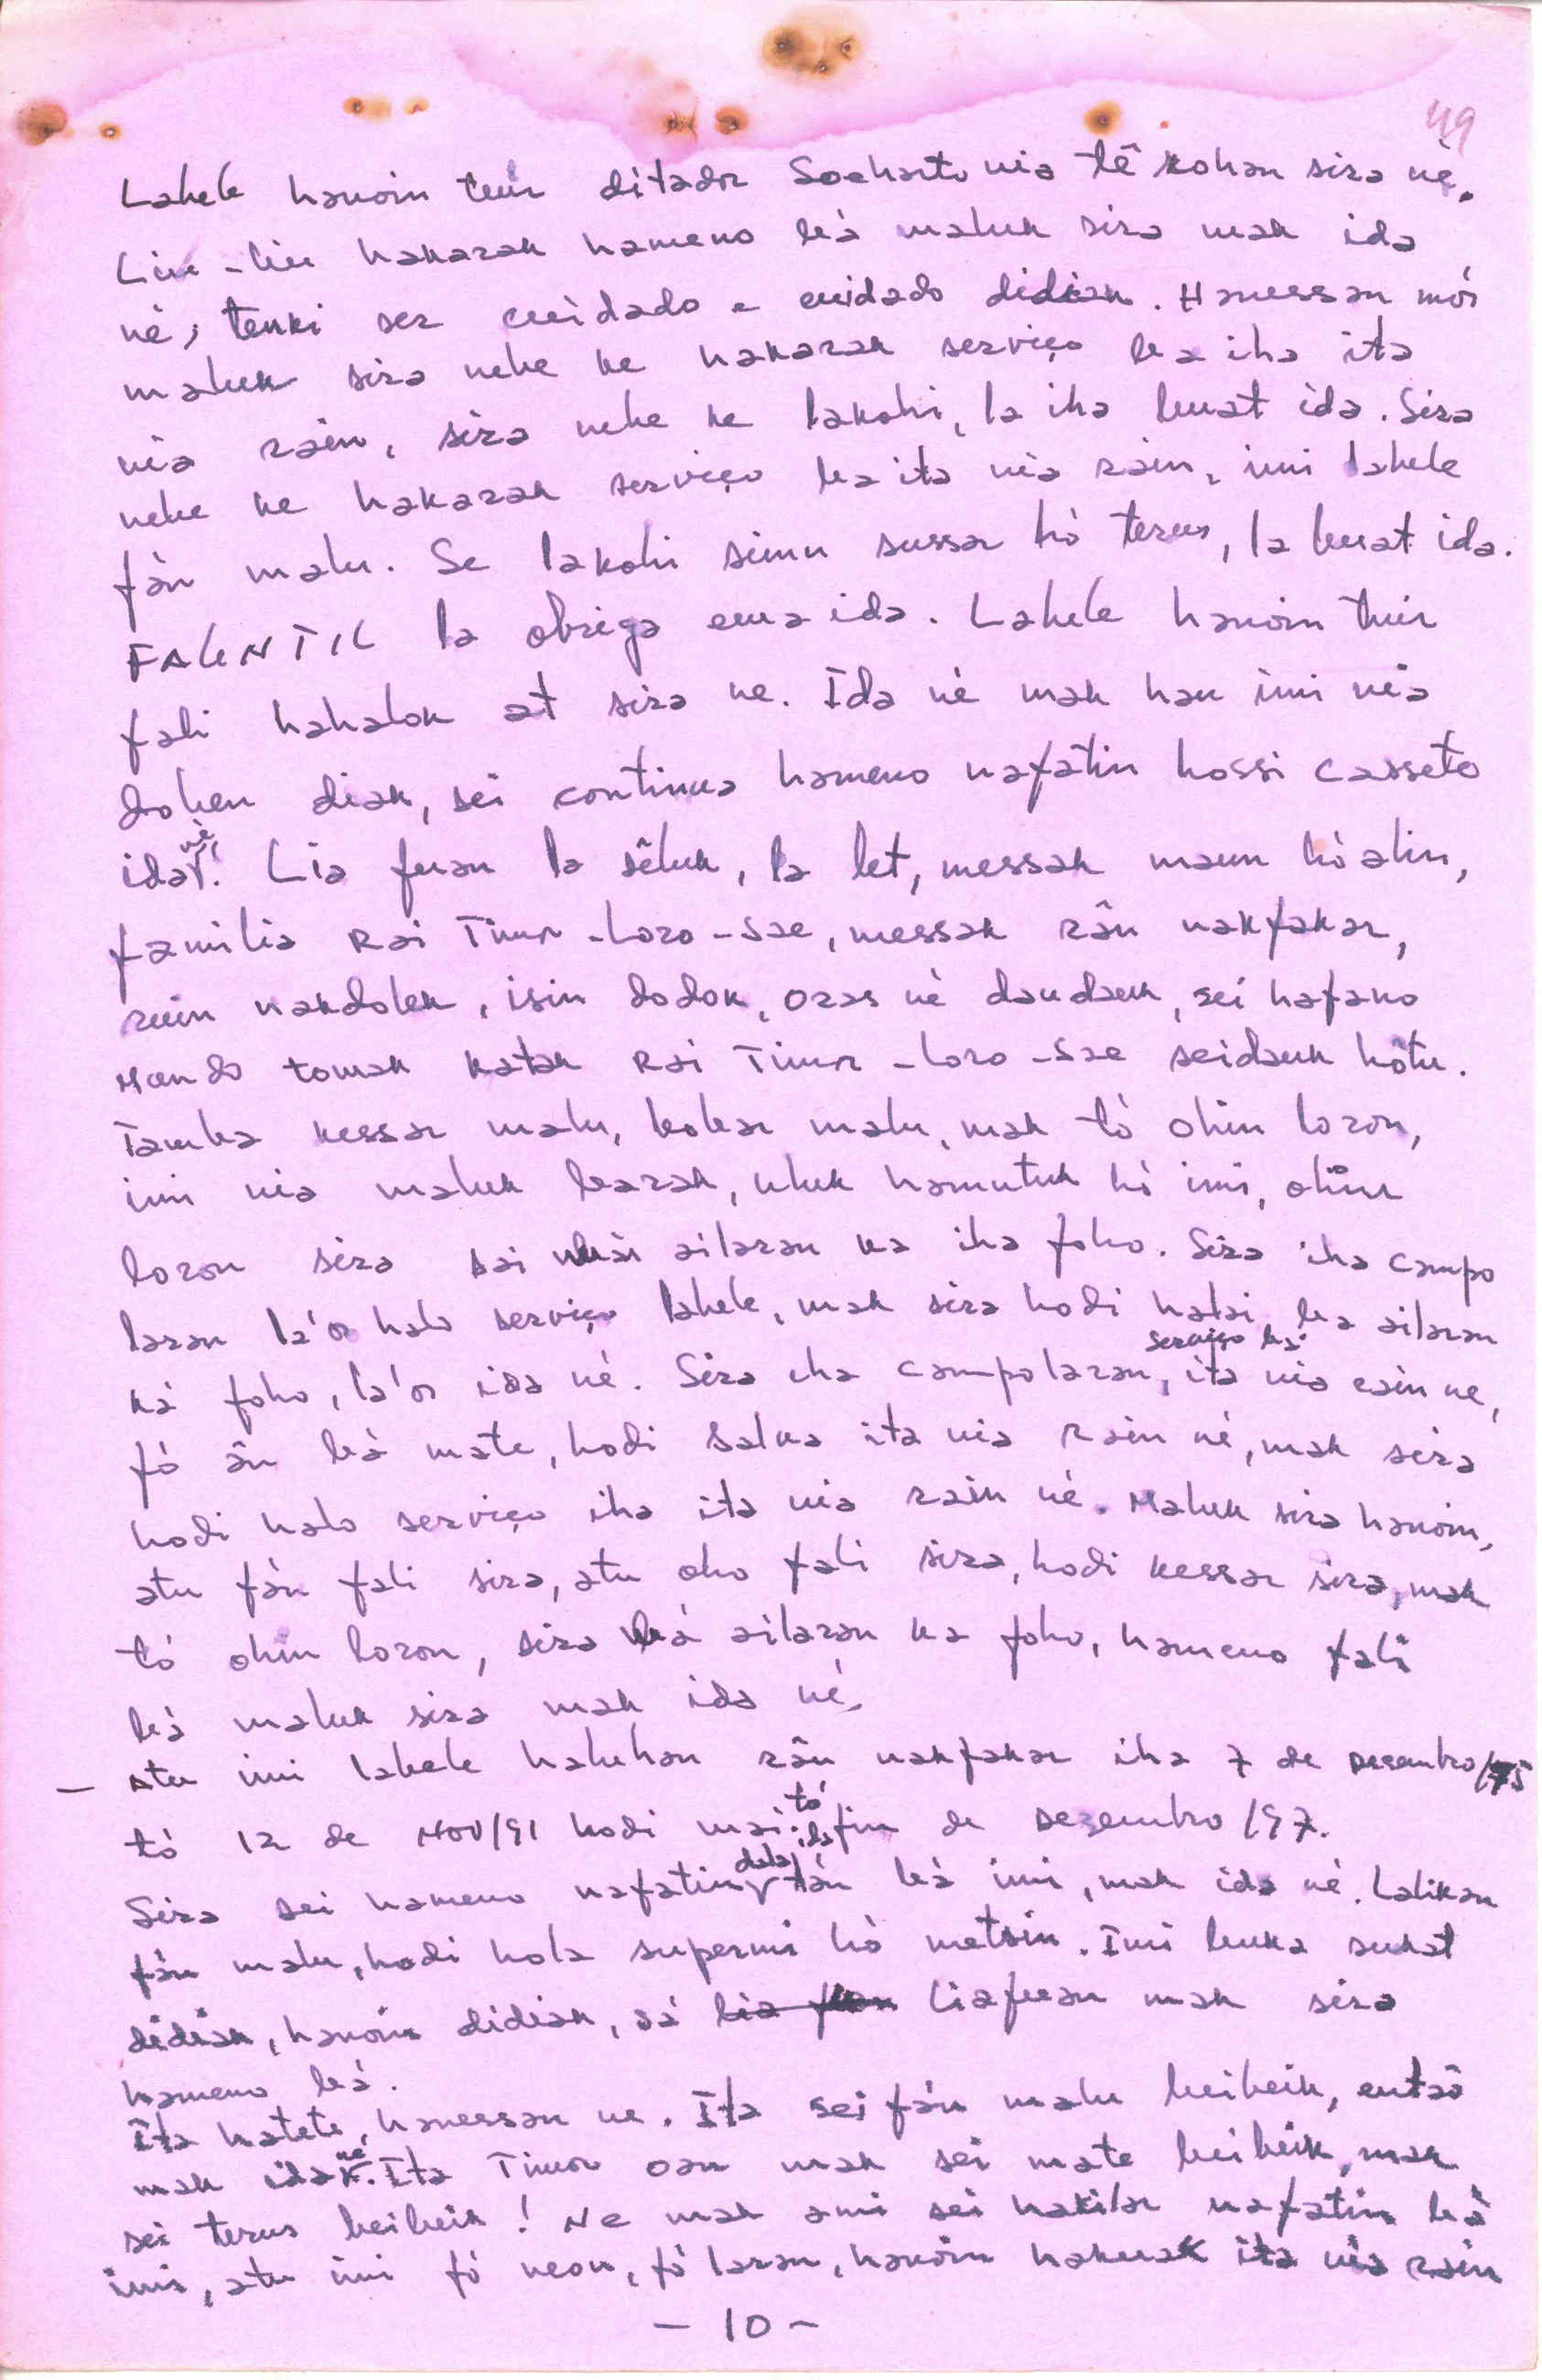 49
Labele hanoin tuir ditador Soeharto nia tê kohan sira nê.
Liu-liu hakarak hameno bà maluk sira mak ida
nè, tenki ser cuidado e cuidado didiak. Hanessan mós
maluk sira nebe ke hakarak serviço ba iha ita
nia rain, sira nebe ke lakohi, la iha buat ida. Sira
nebe ke hakarak serviço ba ita nia rain, imi labele
fàn malu. Se lakohi simu sussar hò terus, la buat ida.
FALINTIL la obriga ema ida. Labele hanoin tuir
fali hahalok at sira ne. Ida nè mak hau imi nia
doben diak, sei continua hameno nafatin hossi casseto
ida nè. Lia fuan la sêluk, la let, messak maun hò alin,
familia Rai Timor-Loro-Sae, messak rân nakfakar,
ruin nakdolek, isin dodok, oras nè daudauk, sei hafano
Mundo tomak katak Rai Timor-Loro-Sae seidauk hôtu.
Tamba kessar malu, bobar malu, mak tò ohin loron,
imi nia maluk barak, uluk hamutuk hò imi, ohin
loron sira sai bà ailaran ka iha foho. Sira iha campo
laran la'os halo serviço labele, mak sira hodi halai ba ailaran
kà foho, la'os ida nè. Sira iha campolaran, serviço bà ita nia rain ne,
fó ân bà mate, hodi salva ita nia Rain nè, mak sira
hodi halo serviço iha ita nia rain nè. Maluk sira hanoin,
atu fàn fali sira, atu oho fali sira, hodi kessar sira, mak
tò ohin loron, sira bà ailaran ka foho, hameno fali
bà maluk sira mak ida nè,
- Atu imi labele haluhan rân nakfakar iha 7 de Desembro/75
tò 12 de NOV/91 hodi mai tò fin de Dezembro/97.
Sira sei hameno nafatin dala ida tàn bà imi, mak ida nè. Lalikan
fàn malu, hodi hola supermi hò metsin. Imi buka sukat
didiak, hanoin didiak, sà liafuan mak sira
hameno bà.
Ita hatete, hanessan ne. Ita sei fàn malu beibeik, entaõ
mak ida ne. Ita Timor oan mak sei mate beibeik, mak
sei terus beibeik! Ne mak ami sei hakilar nafatin bà
imi, atu imi fó neon, fó laran, hanoin hakuak ita nia rain
- 10 -